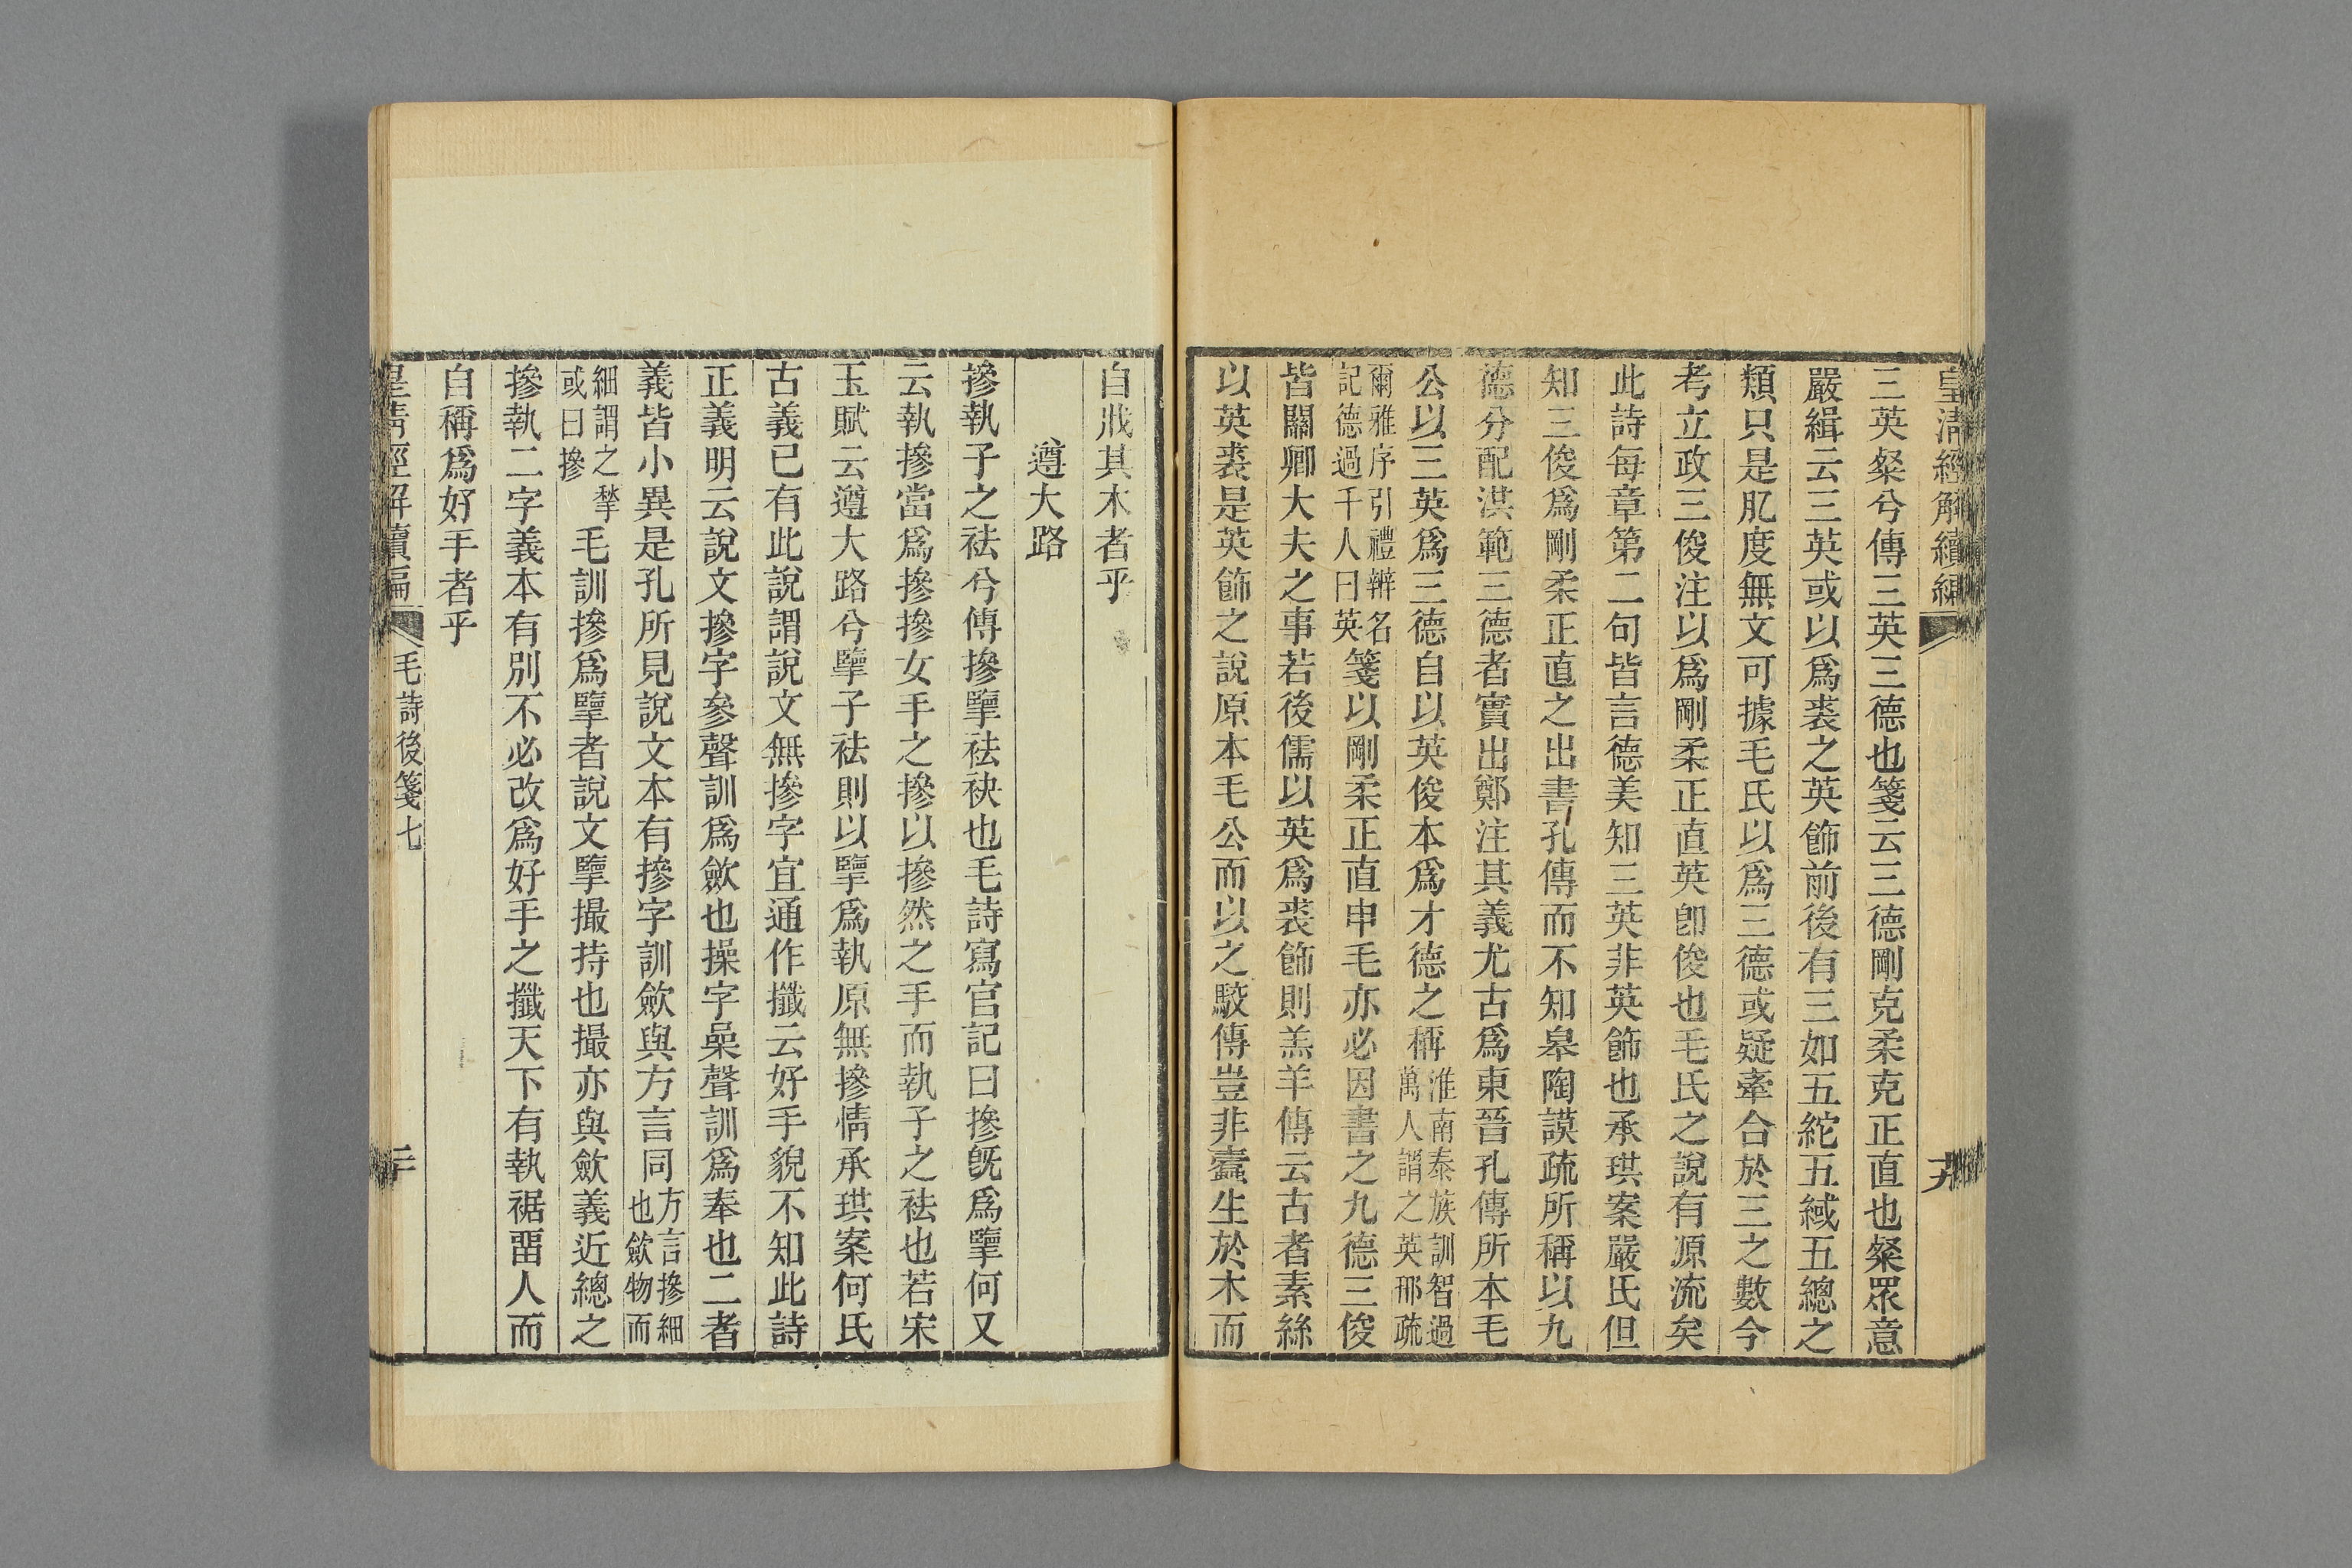 皇清經解續編 十九
三英粲兮傳三英三德也箋云三德剛克柔克正直也粲眾意
嚴緝云三英或以爲裘之英飾前後有三如五紽五緎五總之
類只是肊度無文可據毛氏以爲三德或疑牽合於三之數今
考立政三俊注以爲剛柔正直英卽俊也毛氏之說有源流矣
此詩每章第二句皆言德美知三英非英飾也承珙案嚴氏但
知三俊爲剛柔正直之出書孔傳而不知皋陶謨疏所稱以九
德分配洪範三德者實出鄭注其義尤古爲東晉孔傳所本毛
公以三英爲三德自以英俊本爲才德之稱淮南泰族訓智過萬人謂之英邢疏
爾雅序引禮辨名記德過千人曰英箋以剛柔正直申毛亦必因書之九德三俊
皆關卿大夫之事若後儒以英爲裘飾則羔羊傳云古者素絲
以英裘是英飾之說原本毛公而以之駮傳豈非蠹生於木而
自戕其木者乎
遵大路
摻執子之祛兮傳摻擥祛袂也毛詩寫官記曰摻旣爲擥何又
云執摻當爲摻摻女手之摻以摻然之手而執子之祛也若宋
玉賦云遵大路兮擥子祛則以擥爲執原無摻情承珙案何氏
古義已有此說謂說文無摻字宜通作攕云好手貌不知此詩
正義明云說文摻字參聲訓爲斂也操字喿聲訓爲奉也二者
義皆小異是孔所見說文本有摻字訓斂與方言同方言摻細也斂物而
細謂之揫或曰摻毛訓摻爲擥者說文擥撮持也撮亦與斂義近總之
摻執二字義本有別不必改爲好手之攕天下有執裾畱人而
自稱爲好手者乎
皇清經解續編 毛詩後箋七 二十